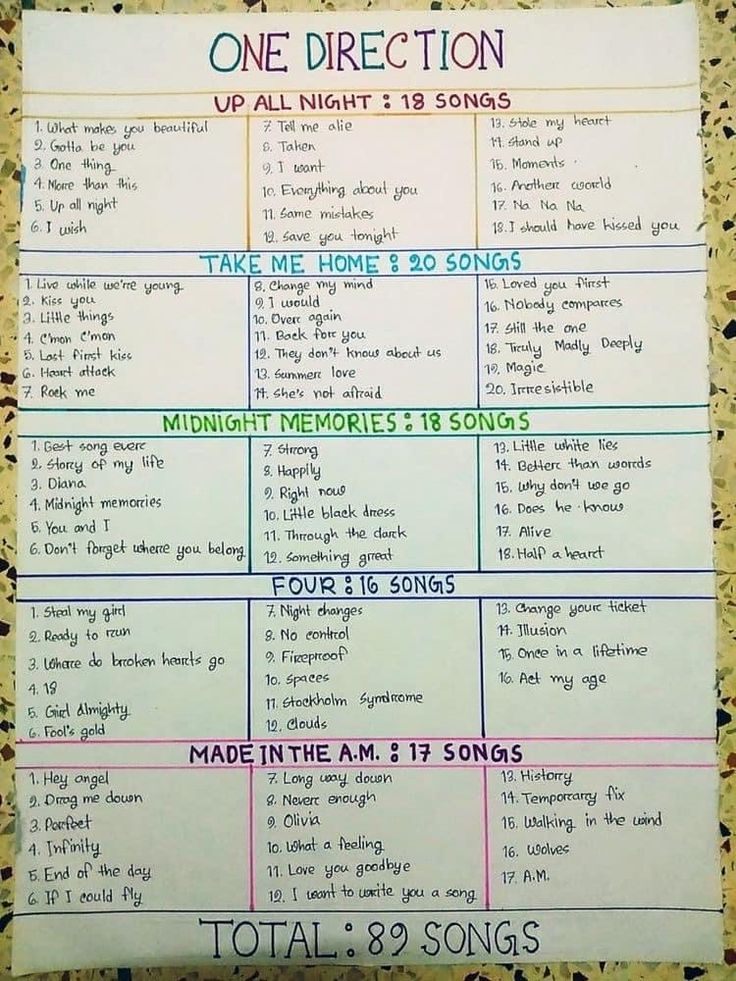 ONE DIRECTION
UP ALL NIGHT : 18 SONGS
1. What makes you beautiful
2. Gotta be you
3. One thing
4. More than this
5. Up all night
6. I wish
7. Tell me alie
8. Taken
9. I want
10. Everything about you
11. Same mistakes
12. Save you tonight
13. Stole my heart
14. Stand up
15. Moments
16. Another world
17. Na Na Na
18. I should have kissed you
TAKE ME HOME : 20 SONGS
1. Live while we're young
2. Kiss you
3. Little things
4. C'mon C'mon
5. Last first kiss
6. Heart attack
7. Rock me
8. Change my mind
9. I would
10. Over again
11. Back for you
12. They don't know about us
13. Summer love
14. She's not afraid
15. Loved you first
16. Nobody compares
17. Still the one
18. Truly Madly Deeply
19. Magic
20. Irresistible
MIDNIGHT MEMORIES : 18 SONGS
1. Best song ever
2. Story of my life
3. Diana
4. Midnight memories
5. You and I
6. Don't forget where you belong
7. Strong
8. Happily
9. Right now
10. Little black dress
11. Through the dark
12. Something great
13. Little white lies
14. Better than words
15. Why don't we go
16. Does he know
17. Alive
18. Half a heart
FOUR : 16 SONGS
1. Steal my girl
2. Ready to run
3. Where do broken hearts go
4. 18
5. Girl Almighty
6. Fool's gold
7. Night changes
8. No control
9. Fireproof
10. Spaces
11. Stockholm Syndrome
12. Clouds
13. Change your ticket
14. Illusion
15. Once in a lifetime
16. Act my age
MADE IN THE A.M. : 17 SONGS
1. Hey angel
2. Drag me down
3. Perfect
4. Infinity
5. End of the day
6. If I could fly
7. Long way down
8. Never enough
9. Olivia
10. What a feeling
11. Love you goodbye
12. I want to write you a song
13. History
14. Temporary fix
15. Walking in the wind
16. Wolves
17. A.M.
TOTAL : 89 SONGS